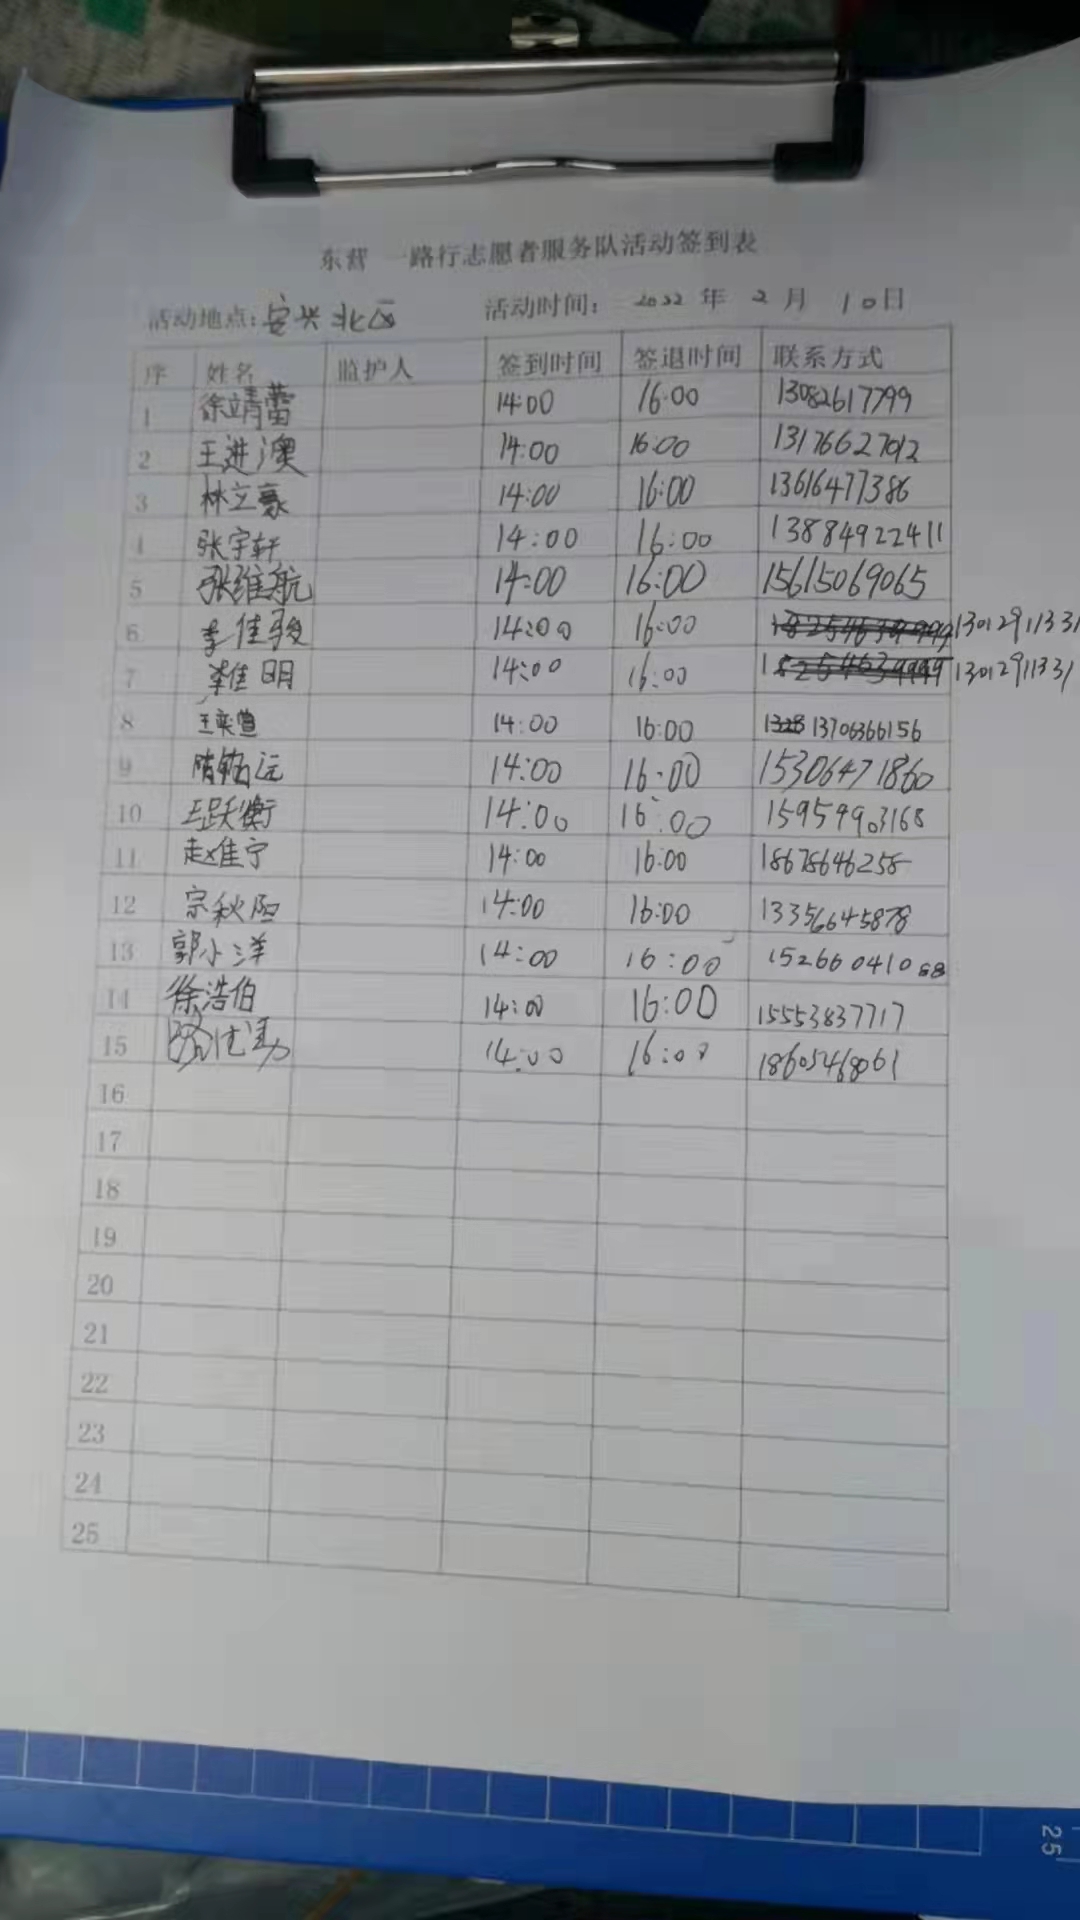 东营一路行志愿者服务队活动签到表
活动地点:安兴北区 活动时间: 2022 年 2 月 10日
序 姓名 监护人 签到时间 签退时间 联系方式
1 徐靖蕾 14:00 16:00 13082617799
2 王进澳 14:00 16:00 13176627012
3 林立豪 14:00 16:00 13616477386
4 张宇轩 14:00 16:00 13884922411
5 张维航 14:00 16:00 15615069065
6 李佳骏 14:00 16:00 13012911331
7 李佳明 14:00 16:00 13012911331
8 王奕萱 14:00 16:00 13706366156
9 隋 远 14:00 16:00 15306471860
10 王跃衡 14:00 16:00 15959903168
11 赵佳宁 14:00 16:00 18678646258
12 宗秋阳 14:00 16:00 13356645878
13 郭小洋 14:00 16:00 152666041068
14 徐浩伯 14:00 16:00 15553837717
15 14:00 16:00 18605468061
16
17
18
19
20
21
22
23
24
25
25